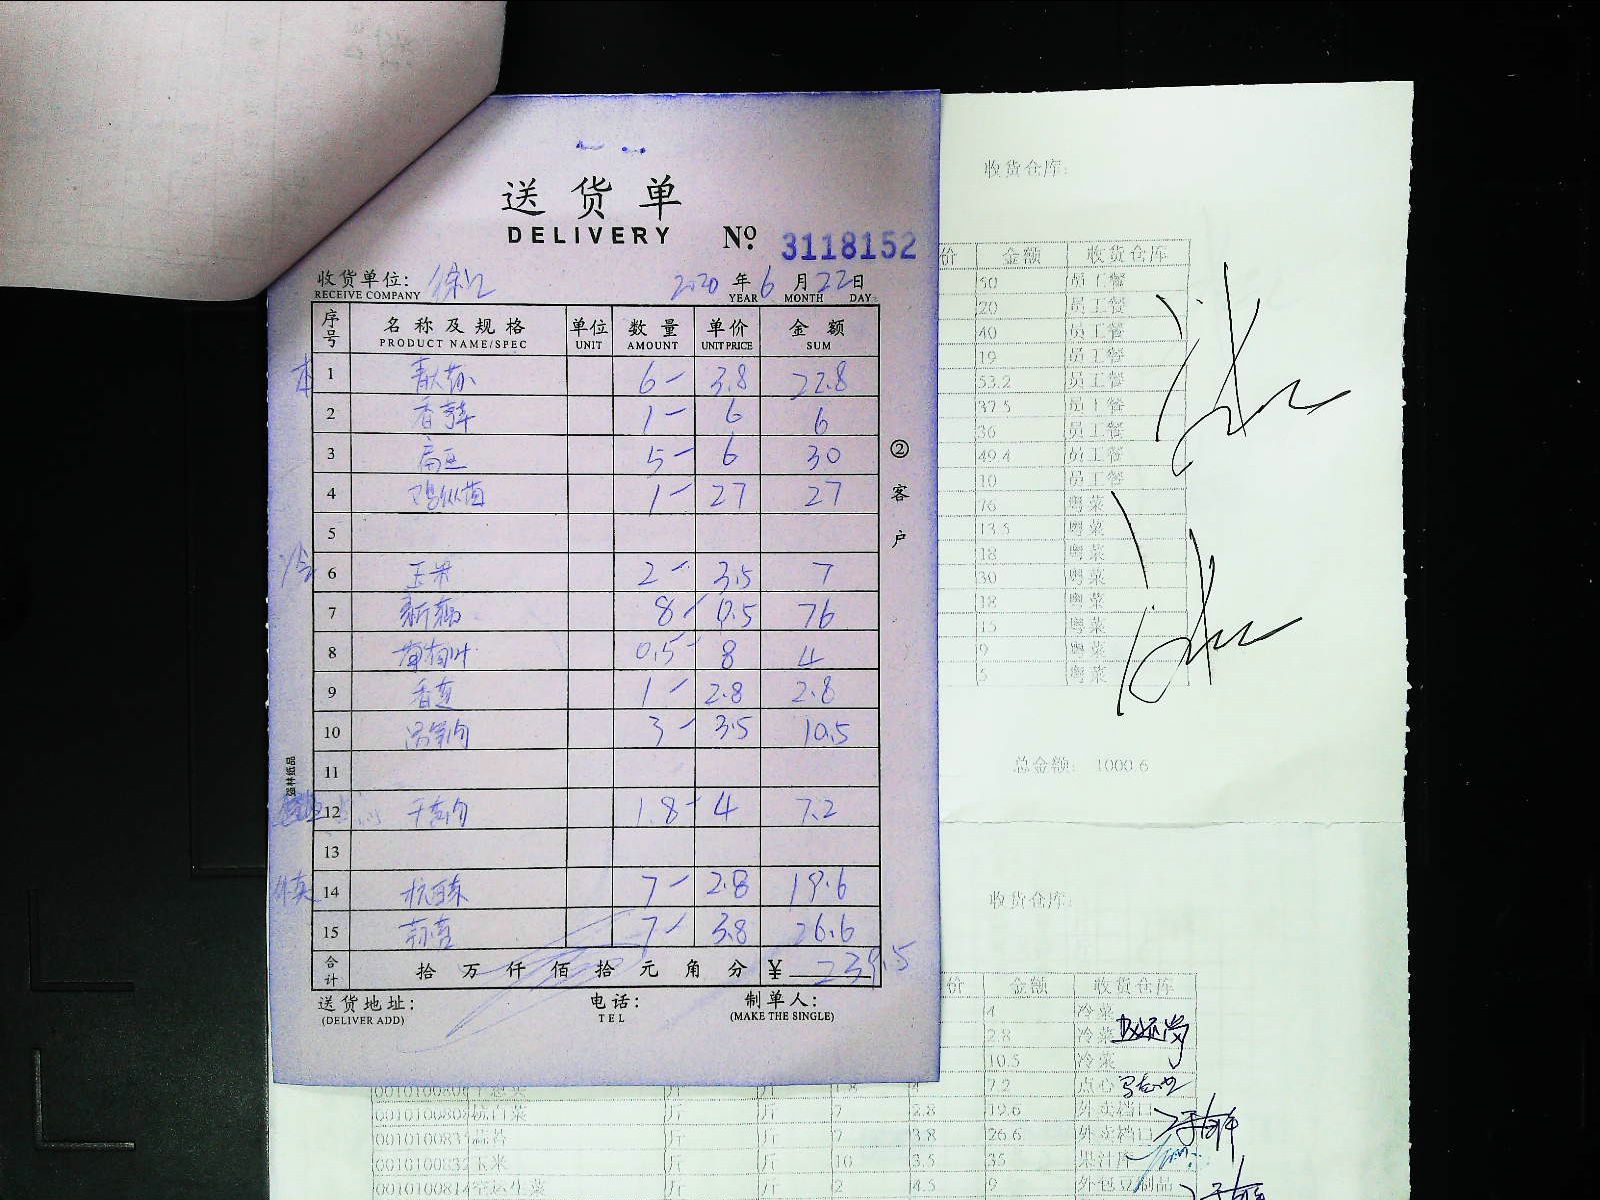 送货单
DELIVERY № 3118152
收货单位: 徐汇 2020年6月22日
RECEIVE COMPANY YEAR MONTH DAY
序号 名称及规格 单位 数量 单价 金额
PRODUCT NAME/SPEC UNIT AMOUNT UNIT PRICE SUM
1 6- 3.8 22.8
2 香芹 1- 6 6
3 扁豆 5- 6 30
4 鸡枞菌 1- 27 27
5
6 玉米 2- 3.5 7
7 8- 9.5 76
8 0.5- 8 4
9 香葱 1- 2.8 2.8
10 3- 3.5 10.5
11
12 1.8- 4 7.2
13
外卖 14 杭白菜 7- 2.8 19.6
15 蒜苔 7- 3.8 26.6
合计 拾万仟佰拾元角分 ¥ 239.5
送货地址: 电话: 制单人:
(DELIVER ADD) TEL (MAKE THE SINGLE)
②客户
强林纸品
收货仓库:
价 金额 收货仓库
50 员工餐
20 员工餐
40 员工餐
19 员工餐
53.2 员工餐
37.5 员工餐
36 员工餐
49.4 员工餐
10 员工餐
76 粤菜
13.5 粤菜
18 粤菜
30 粤菜
18 粤菜
15 粤菜
9 粤菜
5 粤菜
总金额: 1000.6
收货仓库:
价 金额 收货仓库
4 冷菜
2.8 冷菜
10.5 冷菜
7.2 点心
杭白菜 斤 斤 7 2.8 19.6 外卖档口
蒜苔 斤 斤 7 3.8 26.6 外卖档口
玉米 斤 斤 10 3.5 35 果汁库
空运生菜 斤 斤 2 4.5 9 外包豆制品